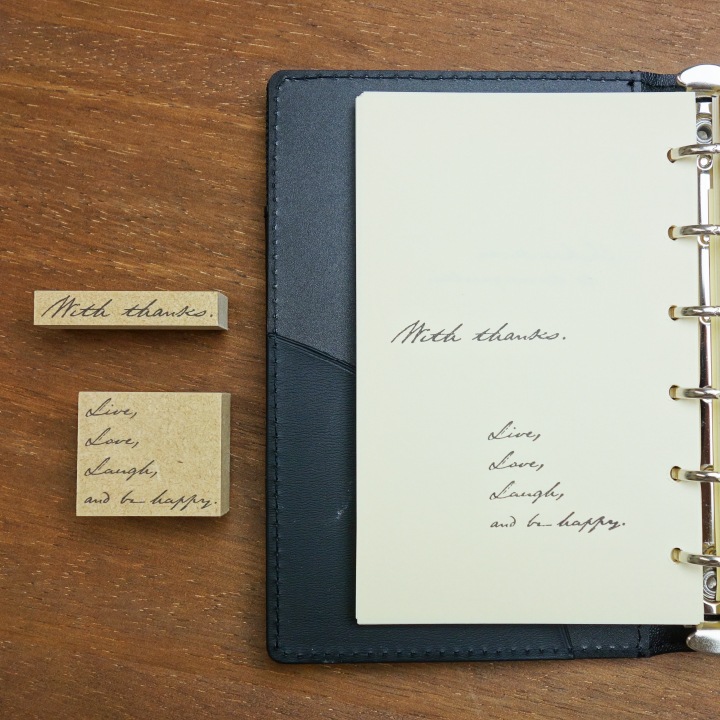 With thanks.
Live,
Love,
Laugh,
and be happy.
With thanks.
Live,
Love,
Laugh,
and be happy.